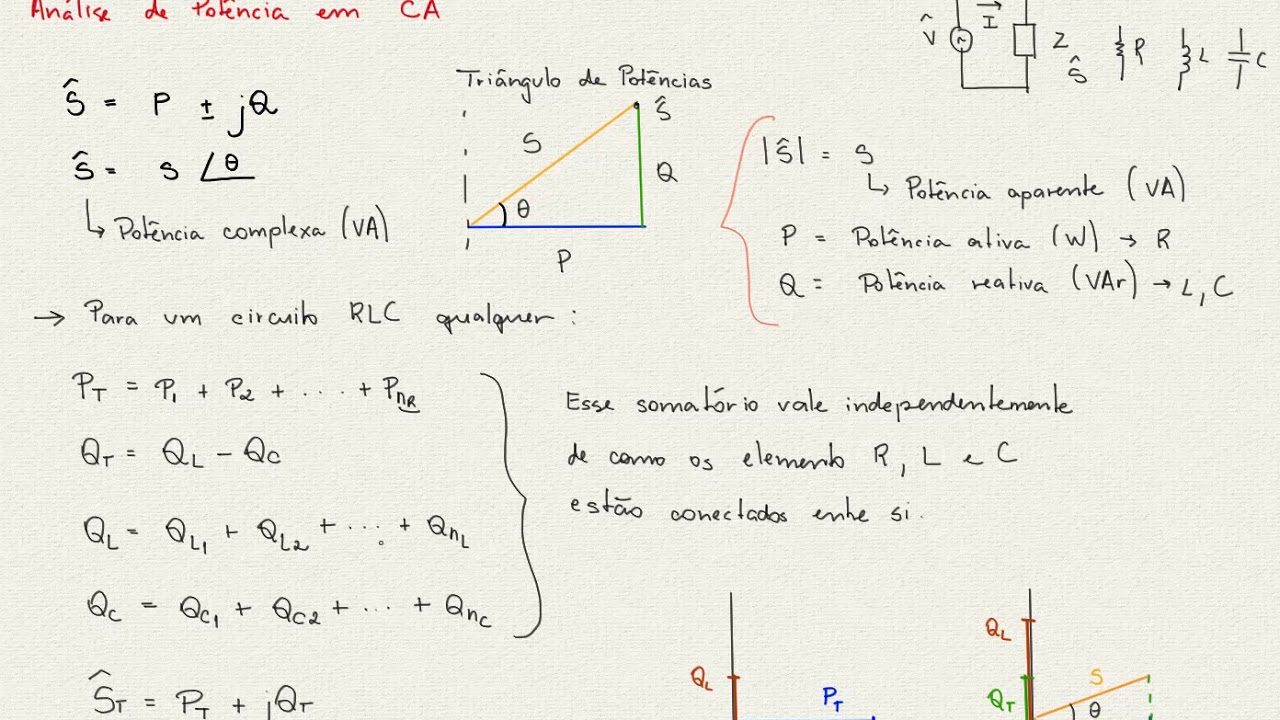 Análise de Potência em CA
V̂ I Z Ŝ R L C
Ŝ = P ± jQ
Ŝ = S ∠θ
↳ Potência complexa (VA)
Triângulo de Potências
Ŝ
S
Q
θ
P
|Ŝ| = S
↳ Potência aparente (VA)
P = Potência ativa (W) → R
Q = Potência reativa (VAr) → L, C
→ Para um circuito RLC qualquer :
P_T = P_1 + P_2 + .... + P_{n_R}
Q_T = Q_L - Q_C
Q_L = Q_{L1} + Q_{L2} + .... + Q_{n_L}
Q_C = Q_{C1} + Q_{C2} + ... + Q_{n_C}
Esse somatório vale independentemente
de como os elemento R, L e C
estão conectados entre si.
Ŝ_T = P_T + jQ_T
Q_L
P_T
Q_L
Q_T
S
θ